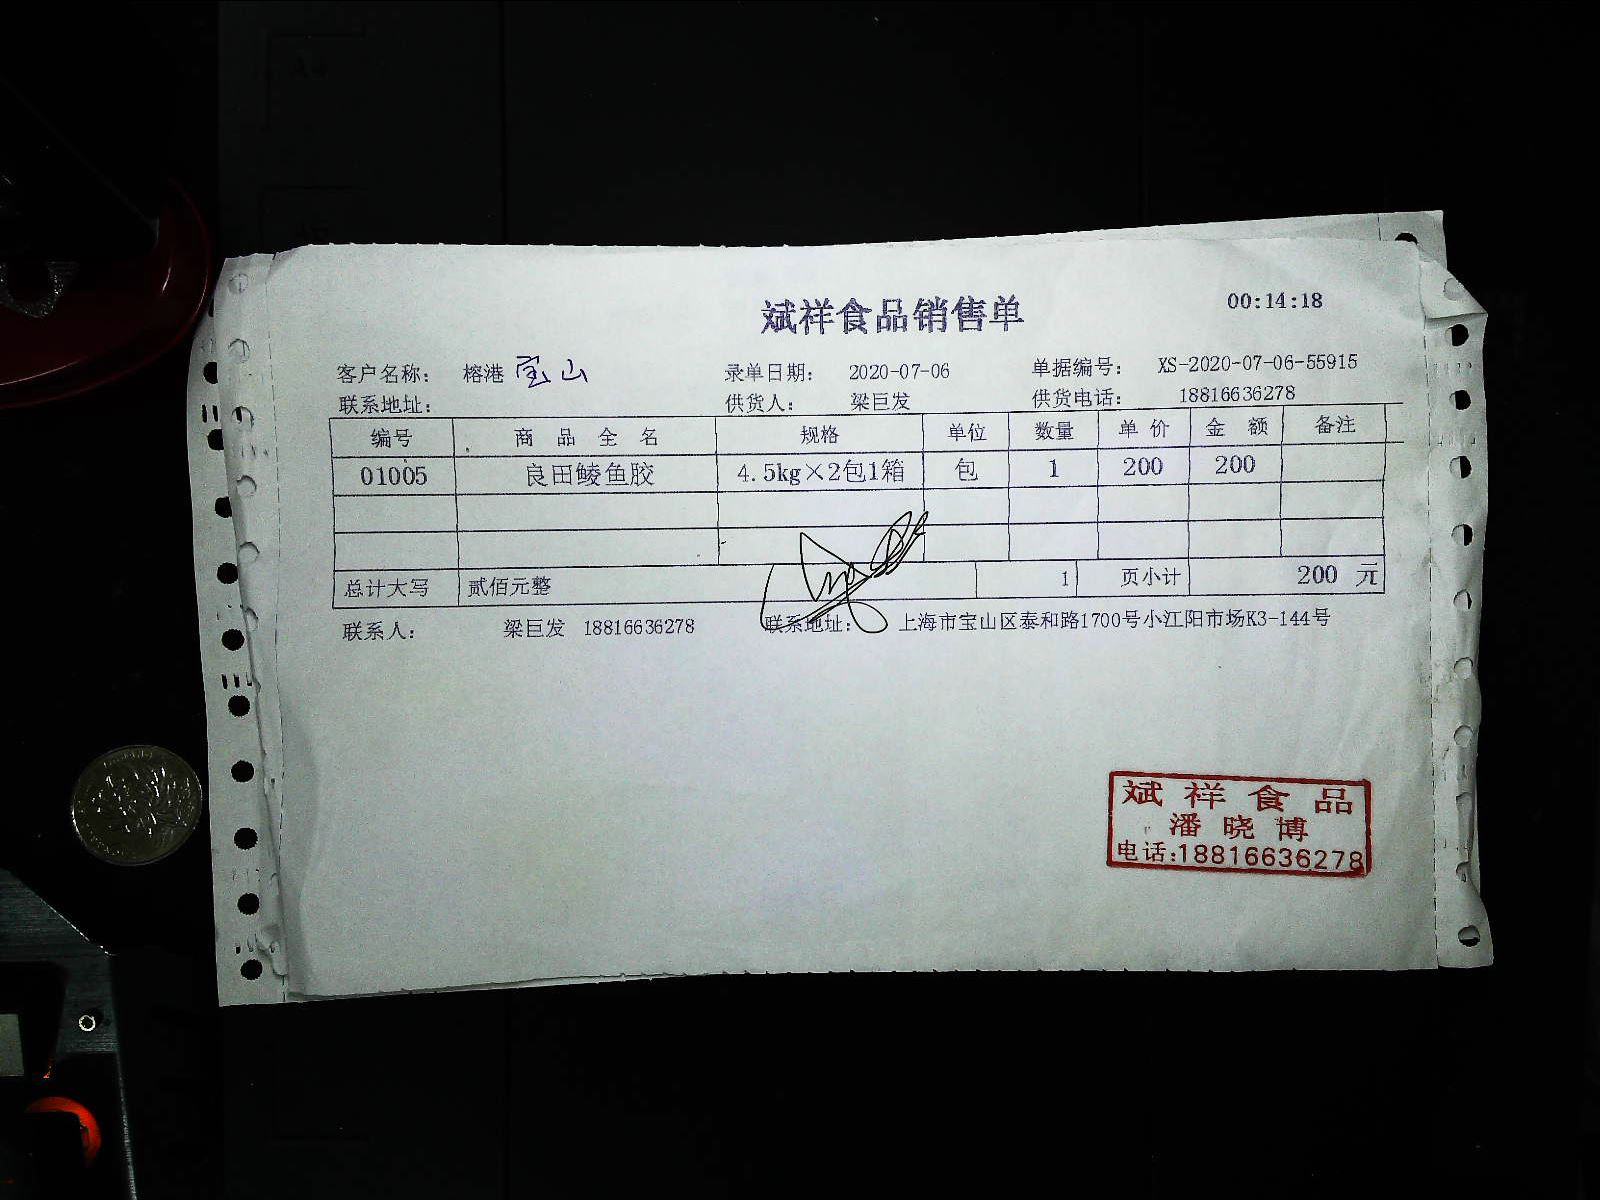 斌祥食品销售单 00:14:18
客户名称: 榕港 宝山 录单日期: 2020-07-06 单据编号: XS-2020-07-06-55915
联系地址: 供货人: 梁巨发 供货电话: 18816636278
编号 商品全名 规格 单位 数量 单价 金额 备注
01005 良田鲮鱼胶 4.5kg×2包1箱 包 1 200 200
总计大写 贰佰元整 1 页小计 200 元
联系人: 梁巨发 18816636278 联系地址: 上海市宝山区泰和路1700号小江阳市场K3-144号
斌祥食品
潘晓博
电话:18816636278